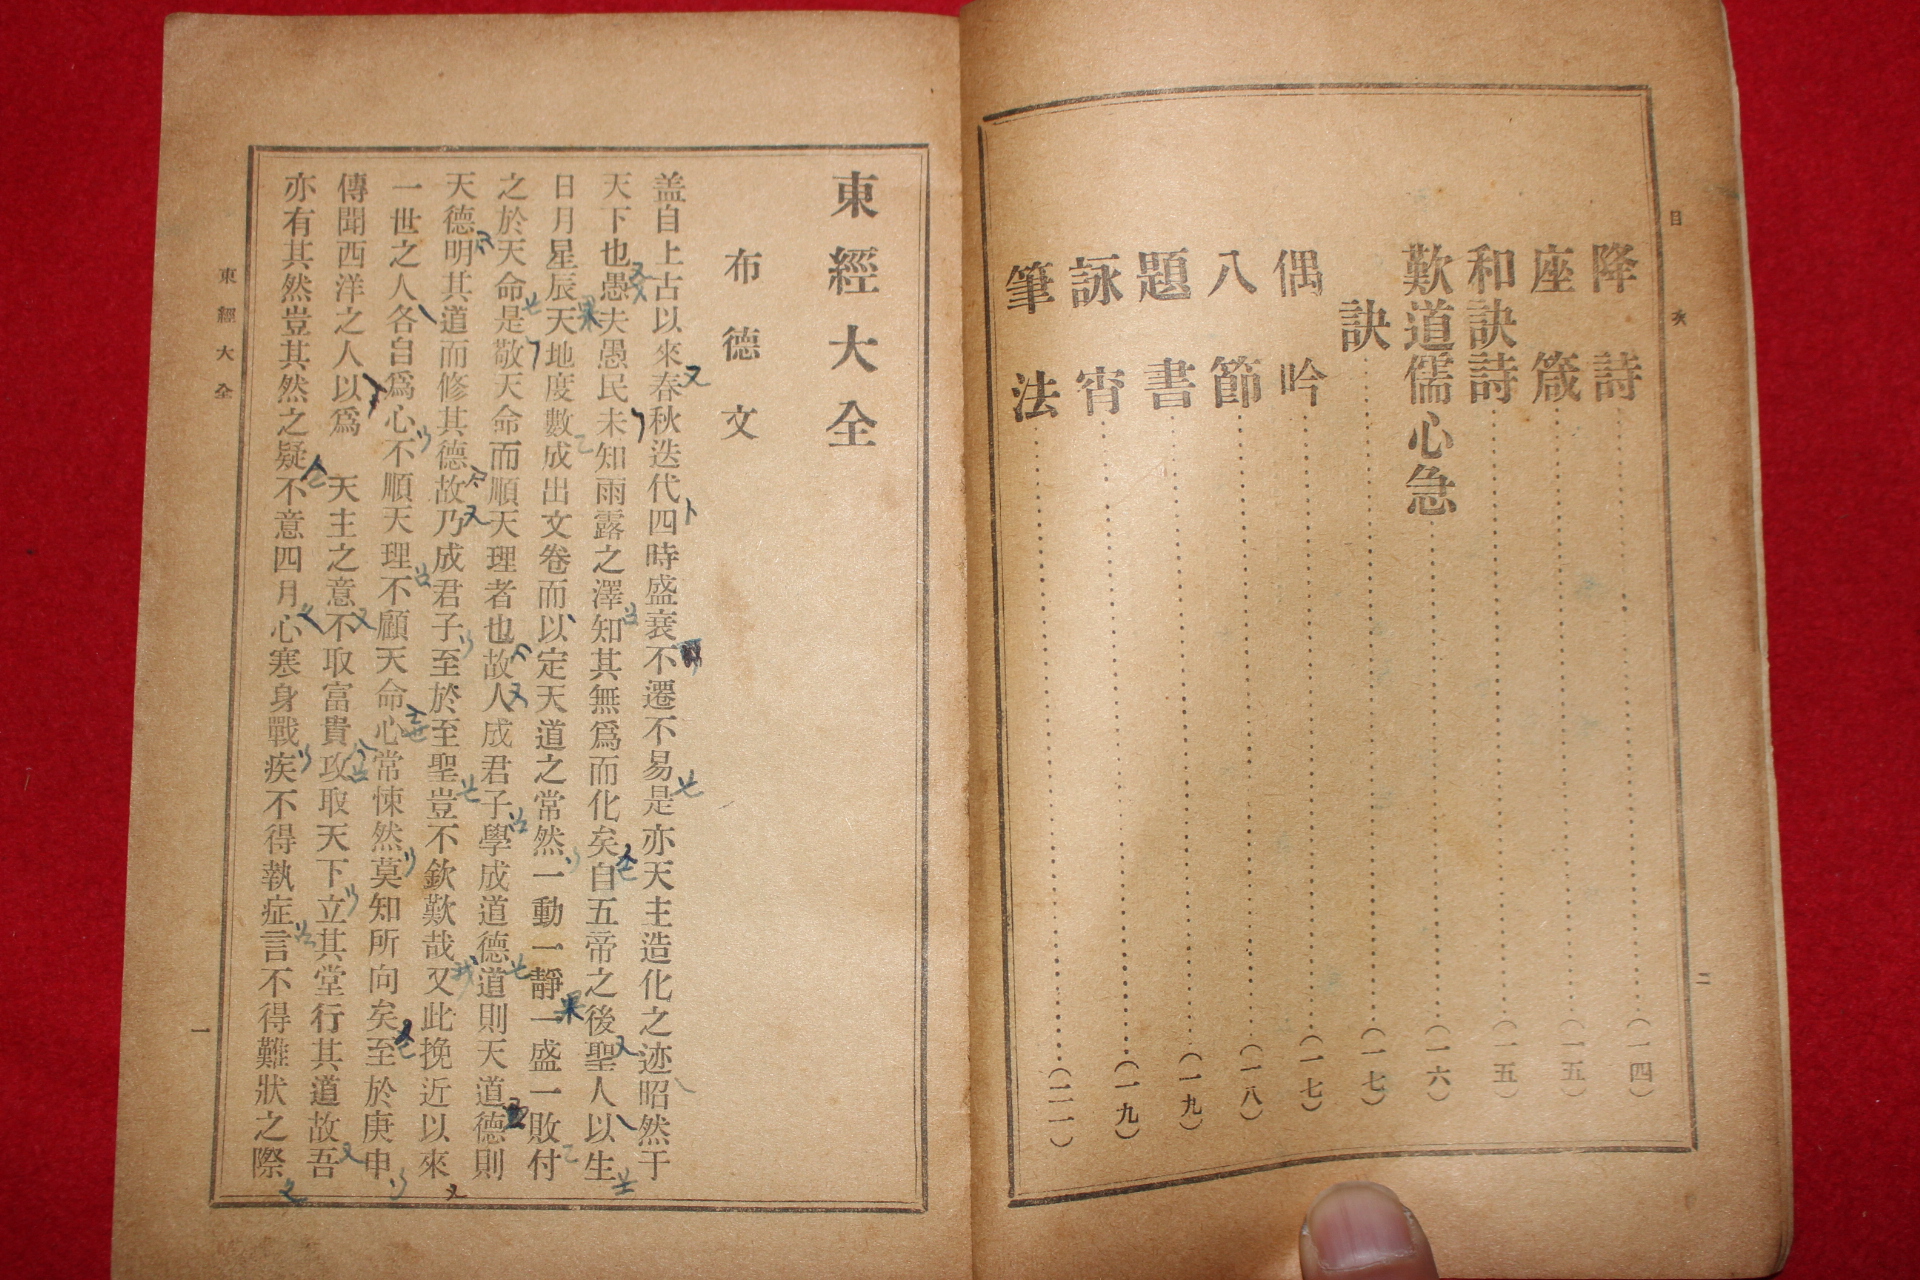 目次 二
降詩(一四)
座箴(一五)
和訣詩(一五)
歎道儒心急(一六)
訣(一七)
偶吟(一七)
八節(一八)
題書(一九)
詠宵(一九)
筆法(二一)
東經大全
布德文
盖自上古以來春秋迭代四時盛衰不遷不易是亦天主造化之迹昭然于
天下也愚夫愚民未知雨露之澤知其無爲而化矣自五帝之後聖人以生
日月星辰天地度數成出文卷而以定天道之常然一動一靜一盛一敗付
之於天命是敬天命而順天理者也故人成君子學成道德道則天道德則
天德明其道而修其德故乃成君子至於至聖豈不欽歎哉又此挽近以來
一世之人各自爲心不順天理不顧天命心常悚然莫知所向矣至於庚申
傳聞西洋之人以爲　天主之意不取富貴攻取天下立其堂行其道故吾
亦有其然豈其然之疑不意四月心寒身戰疾不得執症言不得難狀之際
東經大全 一